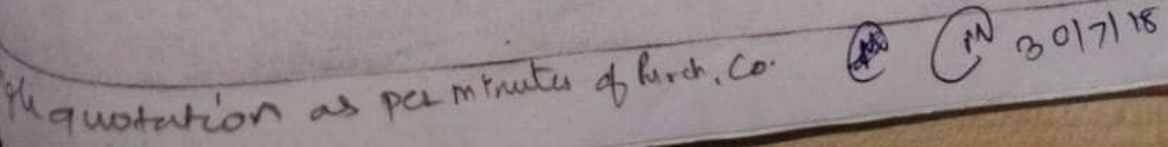 quotation as per minutes of Purch. Co. 30/7/18